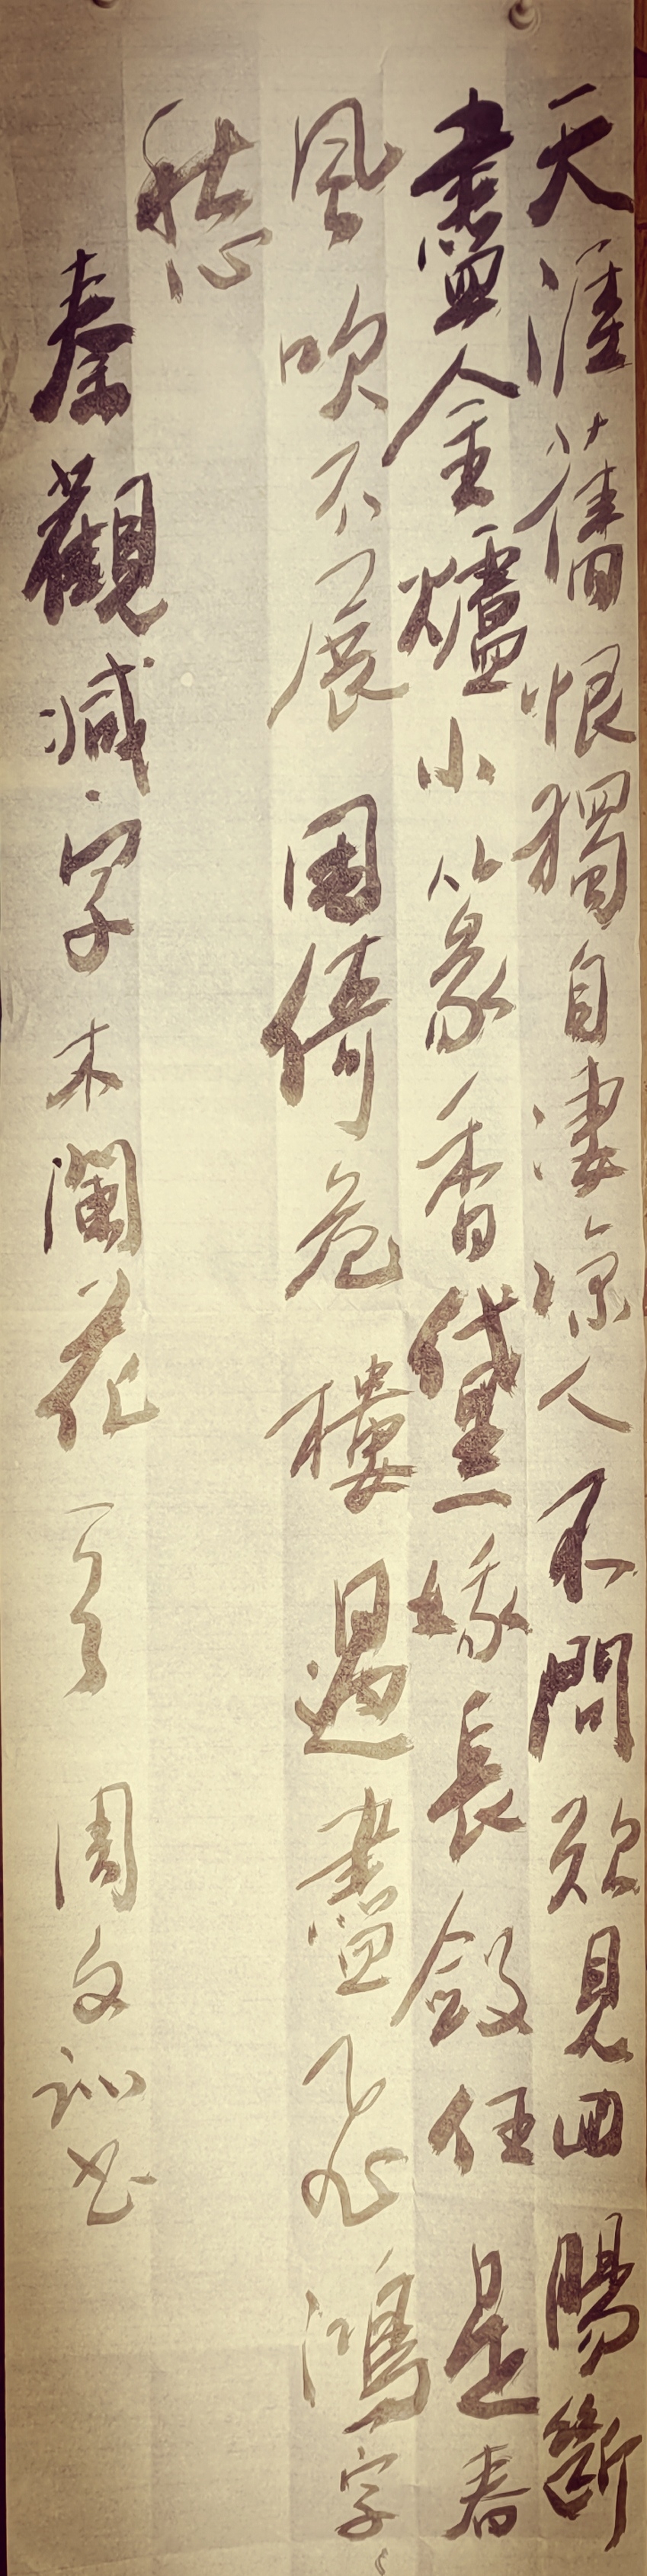 天涯舊恨獨自凄凉人不問欲見回腸斷
盡金爐小篆香黛蛾長斂任是春
風吹不展困倚危樓過盡飛鴻字〻
愁
秦觀減字木蘭花一首 周文訓書